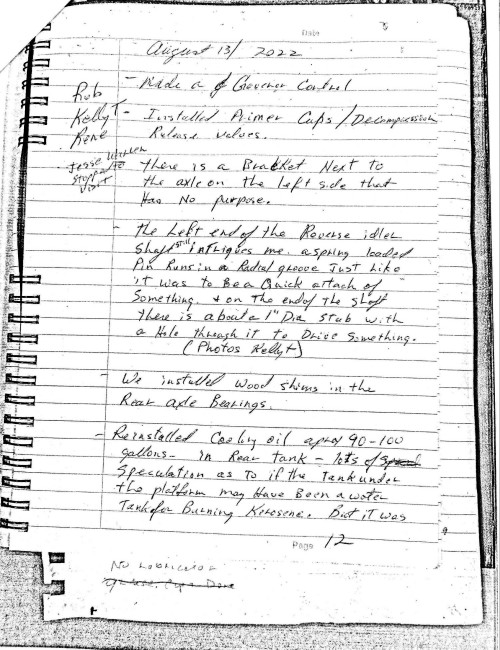 Date
August 13/ 2022
Rob
Kelly T
Rene
Jesse
Stopped to
Visit
- Made a Governor Control
- Installed Primer Cups/Decompression
Release valves.
- there is a Bracket Next to
the axle on the left side that
Has No purpose.
- the Left end of the Reverse idler
Shaft still intrigues me. a spring loaded
Pin Runs in a Radial groove Just Like
it was to Be a Quick attach of
Something. + on The end of the shaft
there is about a 1" Dia stub with
a Hole through it to Drive Something.
(Photos Kelly T)
- We installed wood shims in the
Rear axle Bearings.
- Reinstalled Cooling oil aprox 90-100
gallons - in Rear tank - lots of
Speculation as to if the Tank under
the platform may Have Been a water
Tank for Burning Kerosene. But it was
Page 12
No Lubricator